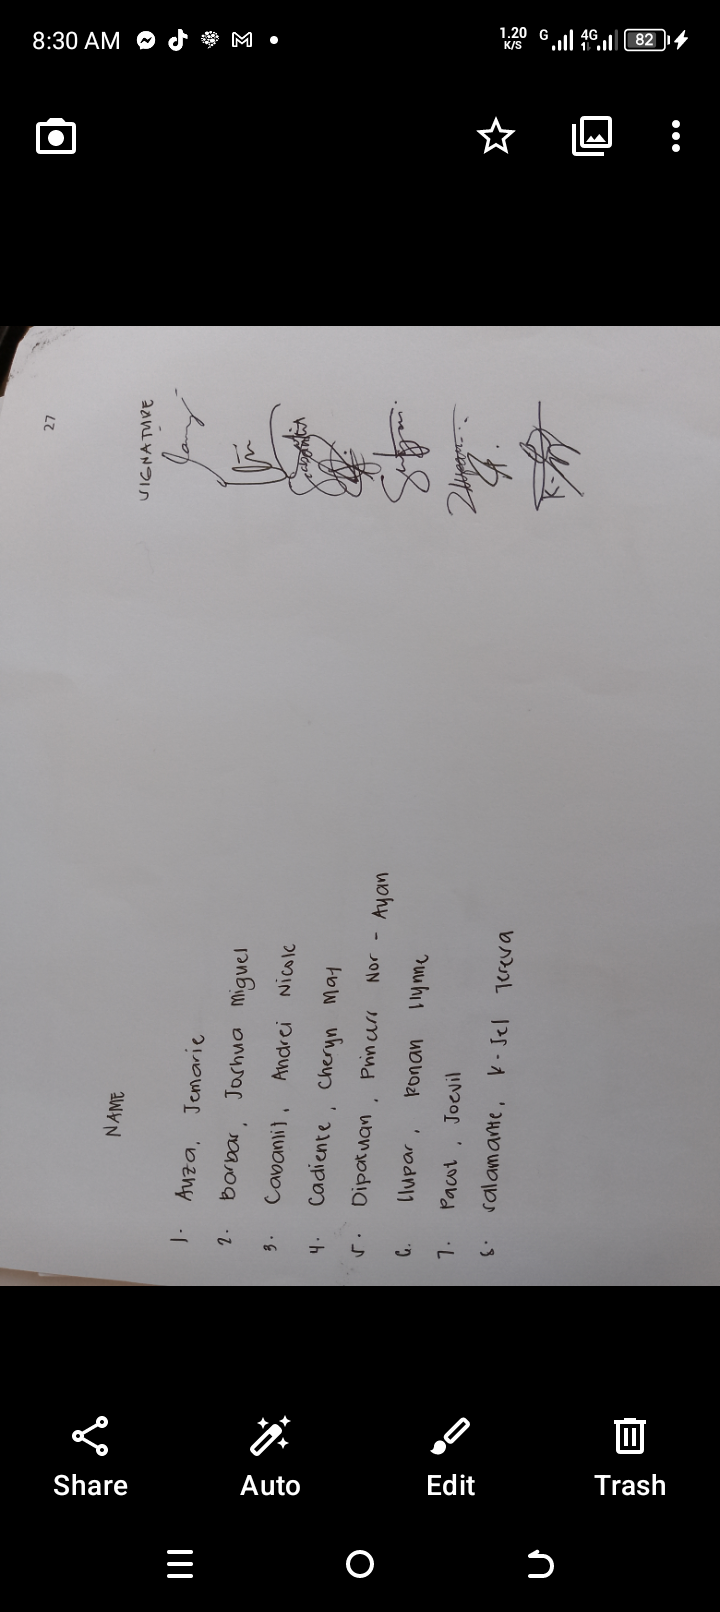 8:30 AM
1.20 K/S G 4G 82
27
NAME SIGNATURE
1. Auza, Jemarie
2. Barbar, Joshua Miguel
3. Cabanlit, Andrei Nicole
4. Cadiente, Cheryn May
5. Dipatuan, Princess Nor - Ayan
6. Llupar, Ronan Llynne
7. Pacot, Joevil
8. Salamante, K-Jel Teresa
Share Auto Edit Trash